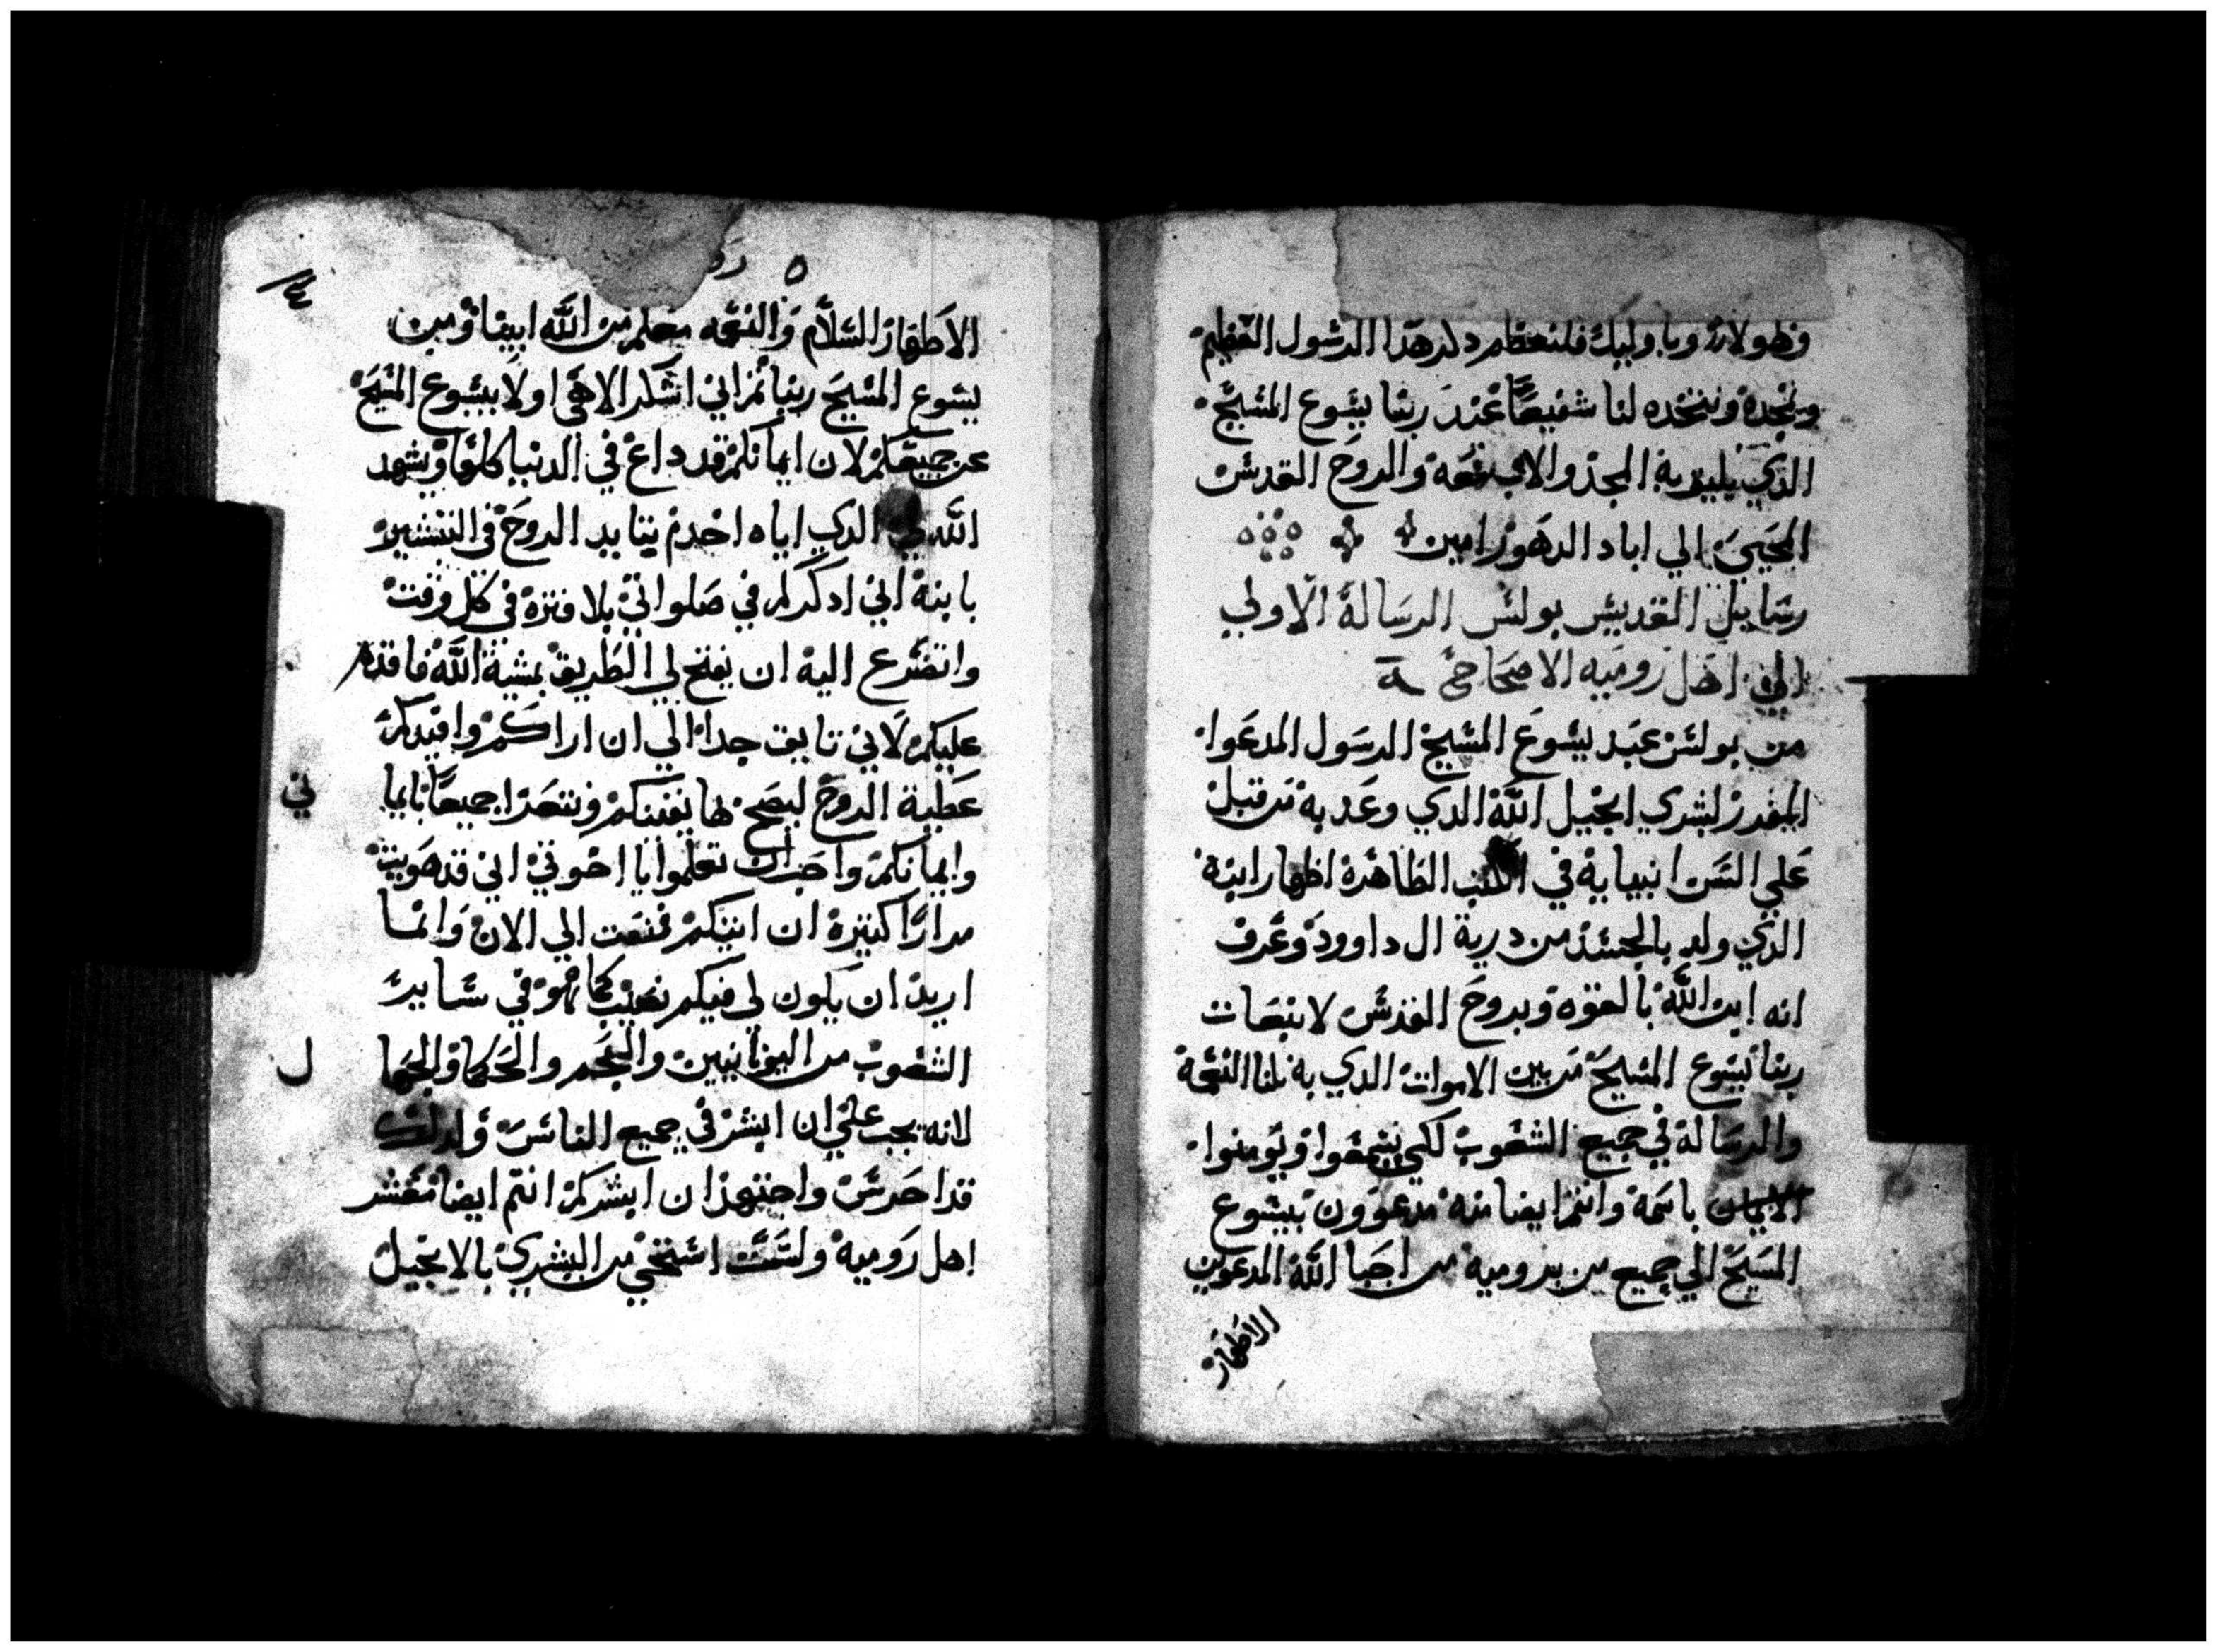 وهولاي وباوليك فلنعظم دكر هدا الرسول العظيم
ونمجده ونتخده لنا شفيعًا عند ربنا يسوع المسيح
الدي يليق به المجد والاب معه والروح القدس
المحيي الي اباد الدهور امين
رسايل القديس بولس الرسالة الاولي
الي اهل روميه الاصحاح
من بولس عبد يسوع المسيح الرسول المدعوا
المفرز لبشري انجيل اللّه الدي وعد به من قبل
علي السن انبيايه في الكتب الطاهره اظهار ابنه
الدي ولد بالجسد من درية ال داوود وعرف
انه ابن اللّه بالقوه وبروح القدس لانبعات
ربنا يسوع المسيح من بين الاموات الدي به نلنا النعمة
والرسالة في جميع الشعوب لكي يسمعوا ويومنوا
باسمه وانتم ايضا منه مدعوون بيسوع
المسيح الي جميع من بروميه من احبا اللّه المدعوين
الاطهار
ه رو
الاطهار السلام والنعمه معكم من اللّه ابينا ومن
يسوع المسيح ربنا تم اني اشكر الاهي اولا بيسوع المسيح
عن جميعكم لان ايمانكم قد داع في الدنيا كلها ويشهد
اللّه لي الدي اياه اخدم بتاييد الروح في التبشير
بابنه اني ادكركم في صلواتي بلا فتره في كل وقت
واتضرع اليه ان يفتح لي الطريق بمشية اللّه فاقدم
عليكم لاني تايق جدا الي ان اراكم وافيدكم
عطية الروح ليصح بها يقينكم ونتعزا جميعًا بايما
ني
وايمانكم واحب ان تعلموا يا اخوتي اني قد هويت
مرارًا كتيره ان اتيكم فمنعت الي الان وانما
اريد ان يكون لي فيكم نصيب كما هو في ساير
الشعوب من اليونانيين والعجم والحكما والجها
ل
لانه يجب علي ان ابشر في جميع الناس ولدلك
قد احرس واجتهد ان ابشركم انتم ايضا معشر
اهل روميه ولست استحي من البشري بالانجيل